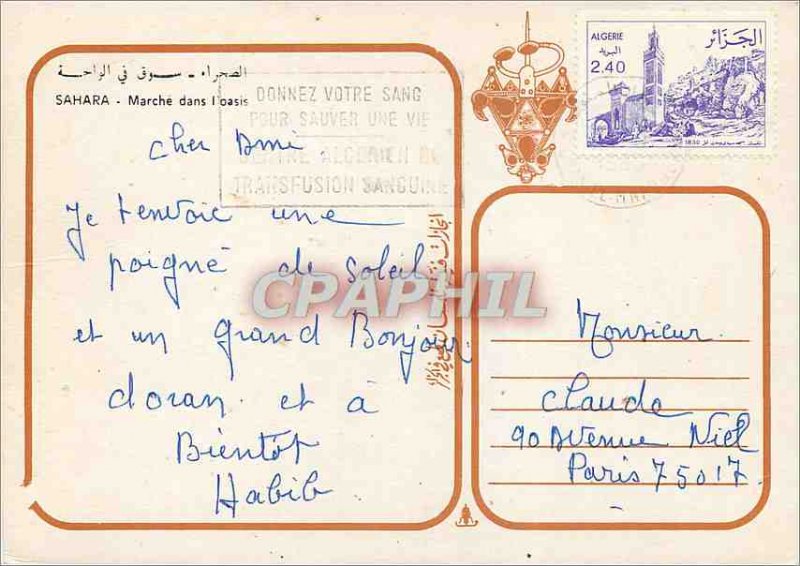 الصحراء - سوق في الواحة
SAHARA - Marché dans l'oasis
DONNEZ VOTRE SANG
POUR SAUVER UNE VIE
CENTRE ALGERIEN DE
TRANSFUSION SANGUINE
ALGERIE
الجزائر
البريد
2.40
1830
cher Ami,
Je t'envoie une
poigné de soleil
et un grand Bonjour
doran et à
Bientôt
Habib
CPAPHIL
Monsieur
Claude
90 Avenue Niel
Paris 75017